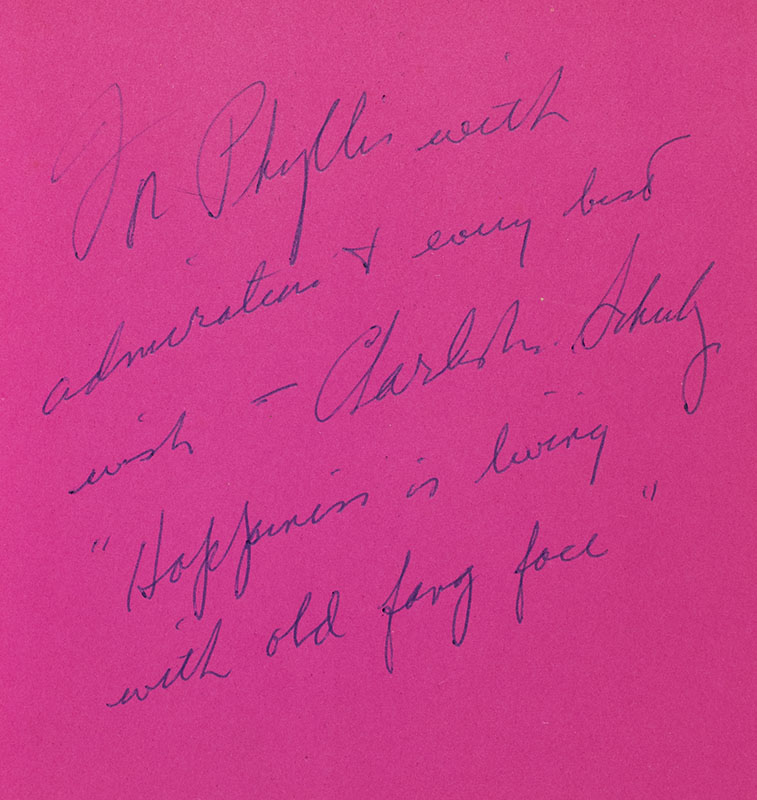 For Phyllis with
admiration & every best
wish – Charles M. Schulz
"Happiness is living
with old fang face"